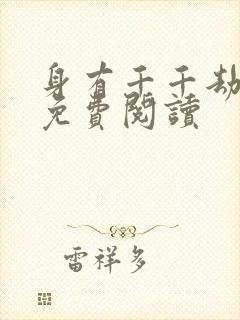 身有千千劫
免費閱讀
雷祥多